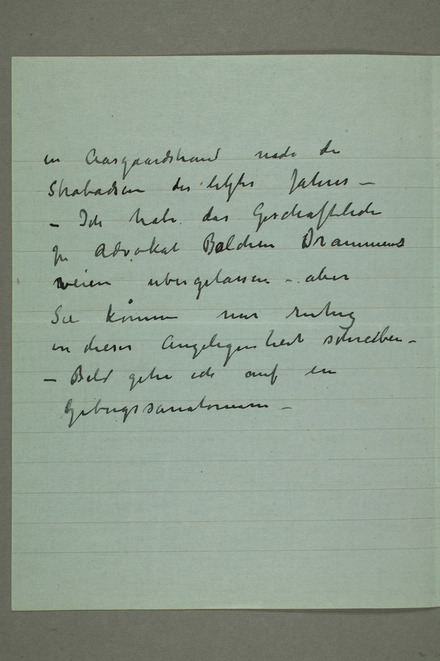 in Aasgaardstrand nach der
Strabadsen des letztes Jahres –
– Ich habe das Geschaftliche
zu Advokat Bolchen Drammens
weien ubergelassen – aber
Sie können nur ruhig
in dieser Angelegenheit schreiben –
– Bald gehe ich auf ein
Gebirgssanatorium –